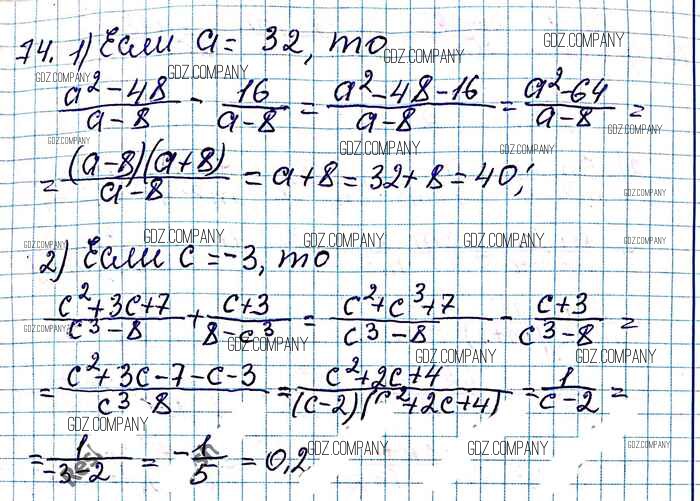 74. 1) Если a = 32, то
GDZ.COMPANY GDZ.COMPANY
GDZ.COMPANY GDZ.COMPANY
(a² - 48)/(a - 8) - 16/(a - 8) = (a² - 48 - 16)/(a - 8) = (a² - 64)/(a - 8) =
GDZ.COMPANY GDZ.COMPANY GDZ.COMPANY GDZ.COMPANY
= (a - 8)(a + 8)/(a - 8) = a + 8 = 32 + 8 = 40;
GDZ.COMPANY
GDZ.COMPANY GDZ.COMPANY GDZ.COMPANY GDZ.COMPANY GDZ.COMPANY
2) Если c = -3, то
(c² + 3c + 7)/(c³ - 8) + (c + 3)/(8 - c³) = (c² + c³ + 7)/(c³ - 8) - (c + 3)/(c³ - 8) =
GDZ.COMPANY GDZ.COMPANY GDZ.COMPANY GDZ.COMPANY
= (c² + 3c - 7 - c - 3)/(c³ - 8) = (c² + 2c + 4)/((c - 2)(c² + 2c + 4)) = 1/(c - 2) =
GDZ.COMPANY
= 1/(-3 - 2) = -1/5 = 0,2
GDZ.COMPANY GDZ.COMPANY GDZ.COMPANY